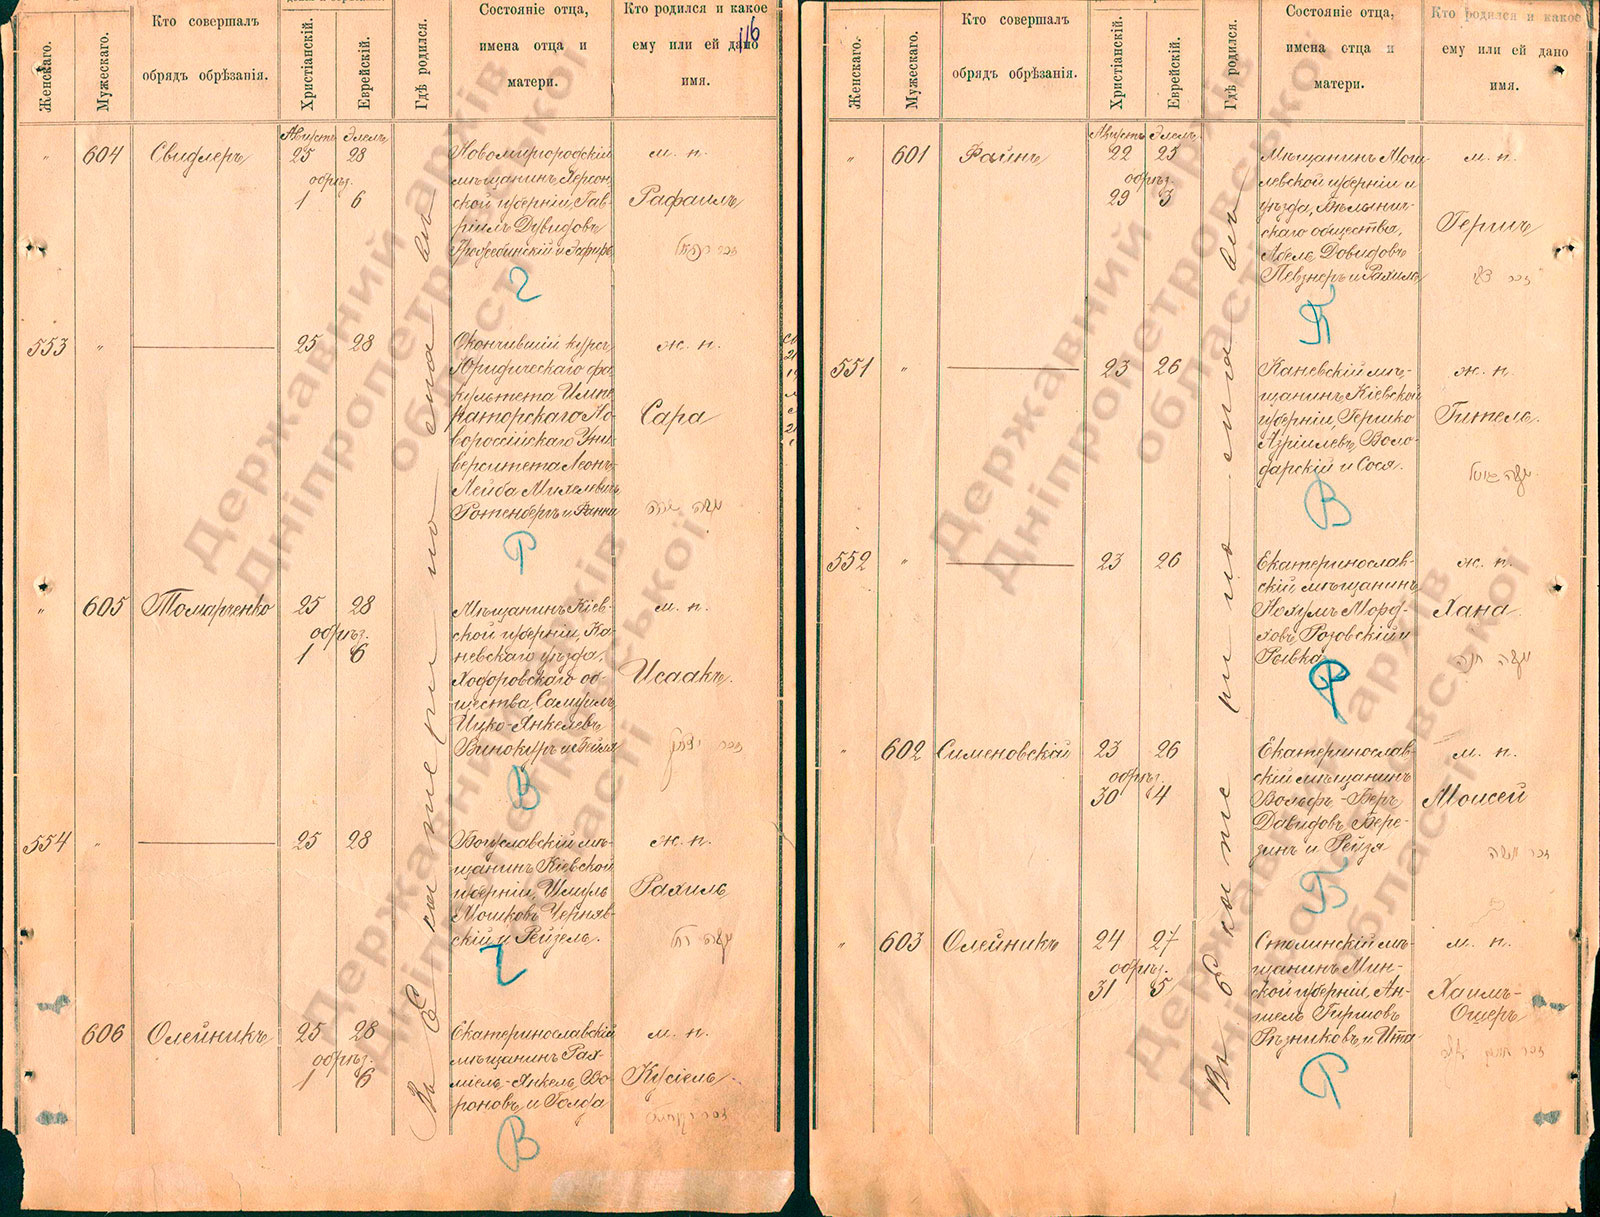 116
Женскаго.
Мужескаго.
Кто совершалъ
обрядъ обрѣзанія.
Христіанскій.
Еврейскій.
Гдѣ родился.
Состояніе отца,
имена отца и
матери.
Кто родился и какое
ему или ей дано
имя.
Августъ Элелъ
" 604 Свидлеръ 25 28
обрѣз.
1 6
Новомиргородскій
мѣщанинъ, Херсон-
ской губерніи, Гав-
ріилъ Дувидовъ
м. п.
Рафаилъ
Г
553 " 25 28
Окончившій курсъ
Юридическаго фа-
культета Импе-
раторскаго Но-
вороссійскаго Уни-
верситета Леонъ-
Лейба Михелевичъ
Ротенбергъ и Фанни
ж. п.
Сара
Р
" 605 Томарченко 25 28
обрѣз.
1 6
Мѣщанинъ Кіев-
ской губерніи, Ка-
невскаго уѣзда,
Ходоровскаго об-
щества, Самуилъ
Ицко-Янкелевъ
Винокуръ и Бейля
м. п.
Исаакъ.
В
554 " 25 28
Богуславскій мѣ-
щанинъ Кіевской
губерніи, Шмуль
Мошковъ Черняв-
скій и Рейзель.
ж. п.
Рахиль
Ч
606 Олейникъ 25 28
обрѣз.
1 6
Екатеринославскій
мѣщанинъ Рах-
міель-Янкель Во-
роновъ и Голда
м. п.
Кусіель.
В
Въ Екатеринославѣ
Женскаго.
Мужескаго.
Кто совершалъ
обрядъ обрѣзанія.
Христіанскій.
Еврейскій.
Гдѣ родился.
Состояніе отца,
имена отца и
матери.
Кто родился и какое
ему или ей дано
имя.
Августъ Элелъ
" 601 Файнъ 22 25
обрѣз.
29 3
Мѣщанинъ Моги-
левской губерніи и
уѣзда, Бѣлынич-
скаго общества,
Абель Довидовъ
Певзнеръ и Рахиль
м. п.
Гершъ
П
551 " 23 26
Каневскій мѣ-
щанинъ Кіевской
губерніи, Гершко
Азріилевъ Воло-
дарскій и Сося.
ж. п.
Гитель.
В
552 " 23 26
Екатеринослав-
скій мѣщанинъ
Нохумъ Морд-
ховъ Розовскій и
Рывка
ж. п.
Хана
Р
" 602 Сименовскій 23 26
обрѣз.
30 4
Екатеринослав-
скій мѣщанинъ
Вольфъ-Беръ
Давидовъ Бере-
зинъ и Рейзя
м. п.
Моисей
Б
" 603 Олейникъ 24 27
обрѣз.
31 5
Столинскій мѣ-
щанинъ Мин-
ской губерніи, Ан-
шель Гиршовъ
Рѣзниковъ и Ита
м. п.
Хаимъ-
Ошеръ
Р
Въ Екатеринославѣ
Державний архів
Дніпропетровської
області